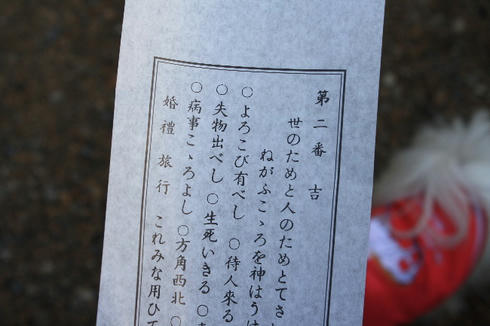 第二番吉
世のためと人のためとてさ
ねがふこゝろを神はうけ
○よろこび有べし ○待人来る
○失物出べし ○生死いきる ○
○病事こゝろよし ○方角西北 ○
婚禮 旅行 これみな用ひて